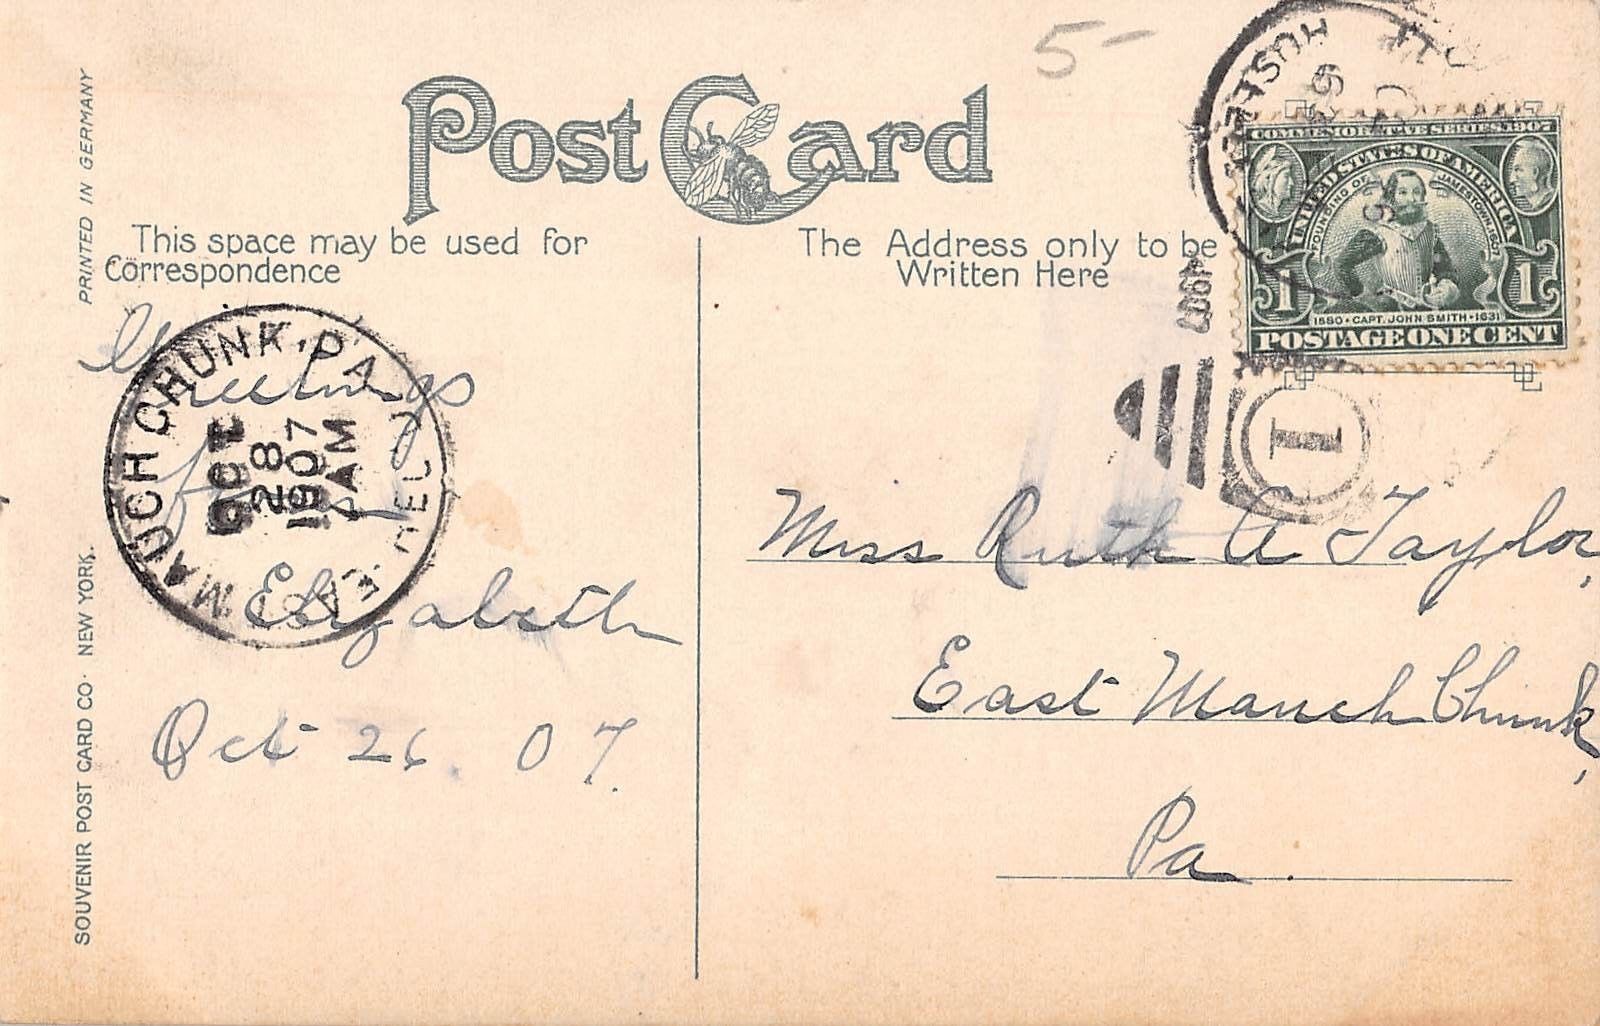 5-
Post Card
This space may be used for
Correspondence
The Address only to be
Written Here
PRINTED IN GERMANY
SOUVENIR POST CARD CO. NEW YORK.
COMMEMORATIVE SERIES 1907
UNITED STATES OF AMERICA
FOUNDING OF JAMESTOWN, 1607
1 1
1580 • CAPT. JOHN SMITH • 1631
POSTAGE ONE CENT
1907
1
MAUCH CHUNK, PA.
EAST DEL'D
OCT
28
1907
7 AM
Greetings
from
Elizabeth
Oct 26. 07.
Miss Ruth A Taylor,
East Mauch Chunk,
Pa.